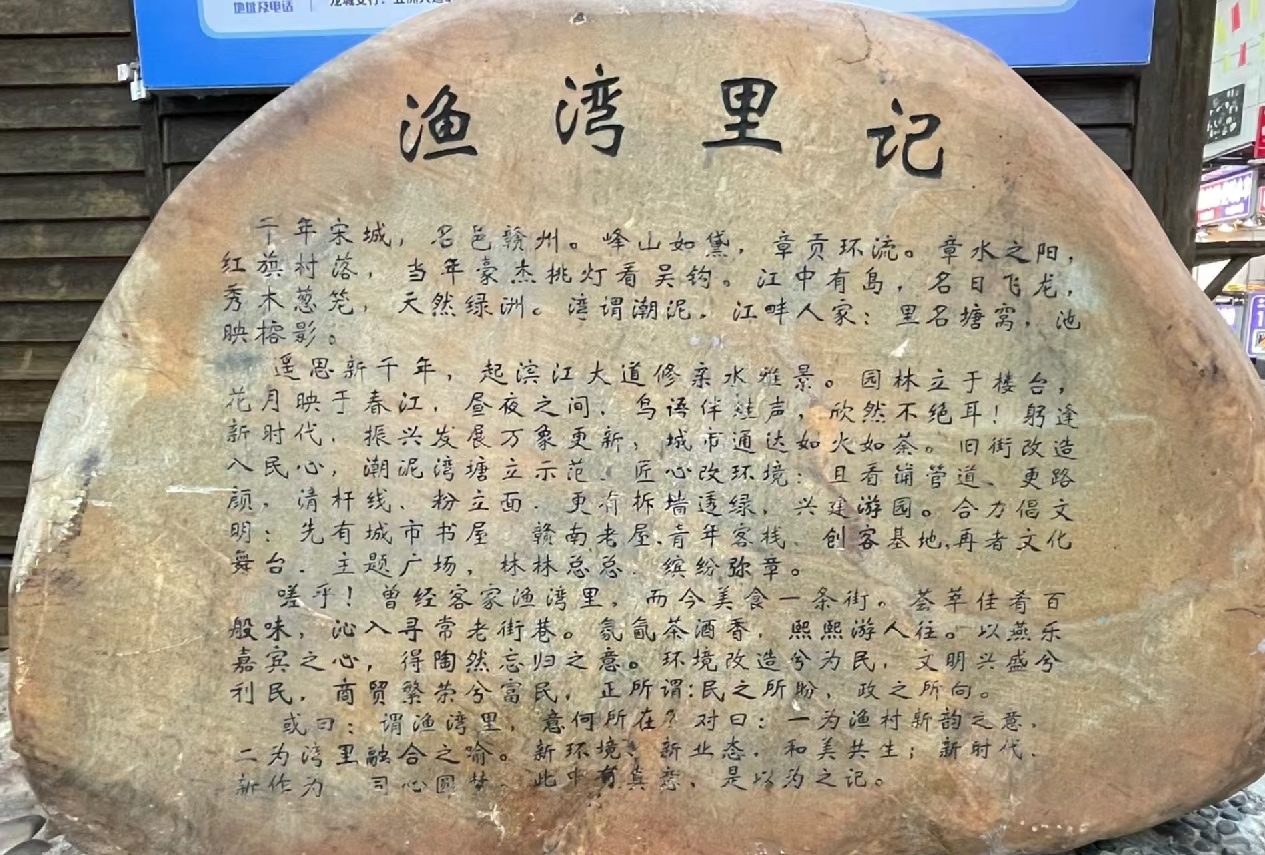 地址及电话
渔湾里记
千年宋城，名邑赣州。峰山如黛，章贡环流。章水之阳，
红旗村落，当年豪杰挑灯看吴钩。江中有岛，名曰飞龙，
秀木葱茏，天然绿洲。湾谓潮泥，江畔人家；里名塘窝，池
映榕影。
遥思新千年，起滨江大道修亲水雅景。园林立于楼台，
花月映于春江，昼夜之间，鸟语伴蛙声，欣然不绝耳！躬逢
新时代，振兴发展万象更新，城市通达如火如荼。旧街改造
入民心，潮泥湾塘立示范，匠心改环境：且看铺管道、更路
颜，清杆线、粉立面，更有拆墙透绿，兴建游园。合力倡文
明：先有城市书屋 赣南老屋、青年客栈、创客基地，再者文化
舞台、主题广场，林林总总，缤纷弥章。
嗟乎！曾经客家渔湾里，而今美食一条街。荟萃佳肴百
般味，沁入寻常老街巷。氛氲茶酒香，熙熙游人往。以燕乐
嘉宾之心，得陶然忘归之意。环境改造兮为民，文明兴盛兮
利民，商贸繁荣兮富民，正所谓：民之所盼，政之所向。
或曰：谓渔湾里，意何所在？对曰：一为渔村新韵之意，
二为湾里融合之喻。新环境、新业态，和美共生；新时代、
新作为 同心圆梦。此中有真意，是以为之记。